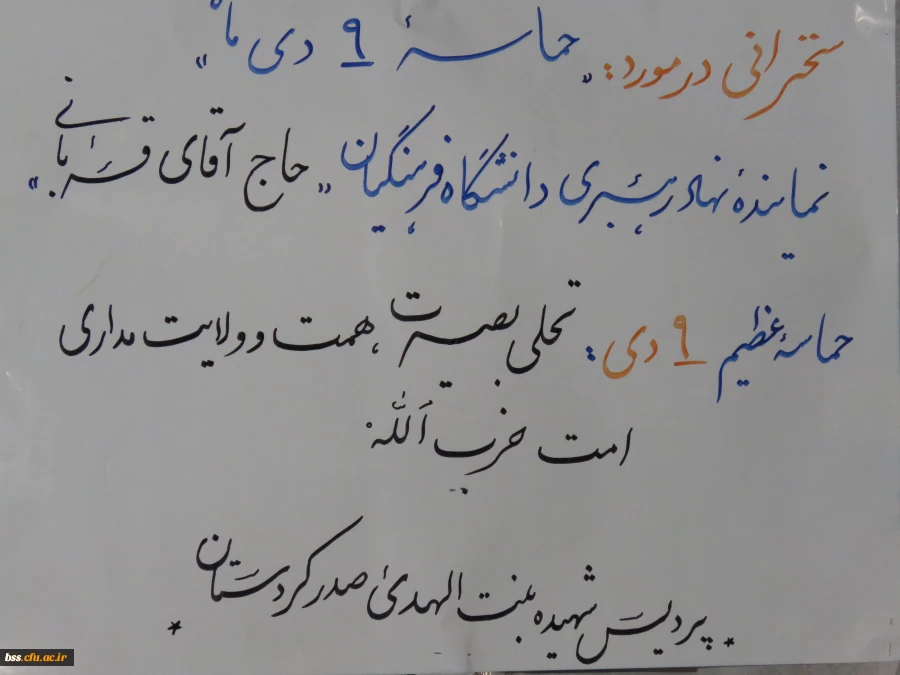 سخنرانی در مورد: "حماسهٔ ۹ دی ماه"
نمایندهٔ نهاد رهبری دانشگاه فرهنگیان "حاج آقای قربانی"
حماسهٔ عظیم ۹ دی: تجلی بصیرت، همت و ولایت مداری
امت حزب اللّه.
* پردیس شهیده بنت الهدیٰ صدر کردستان *
bss.cfu.ac.ir